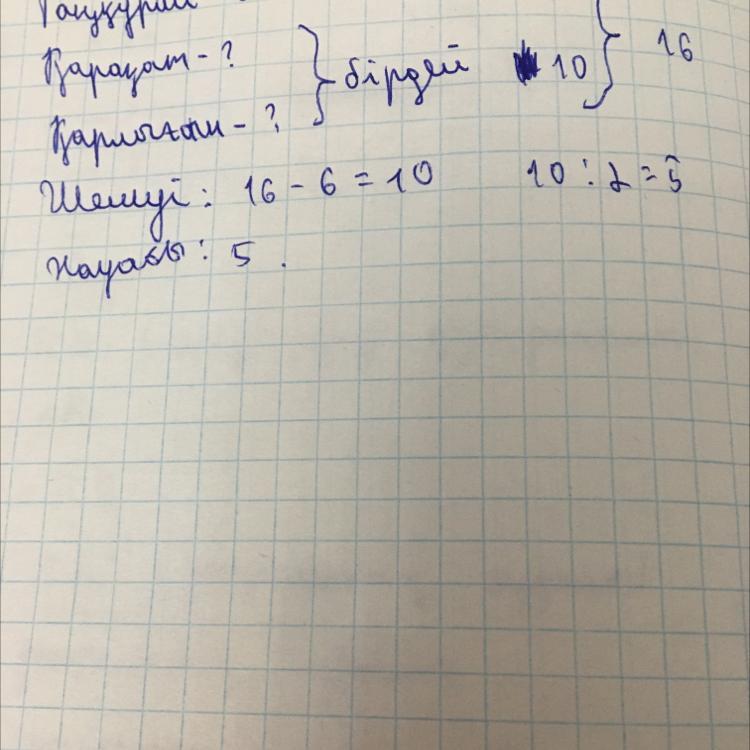 Таңқурай
Қарақат - ? } бірдей 10 } 16
Қарлыған - ?
Шешуі: 16 - 6 = 10 10 : 2 = 5
Жауабы: 5.